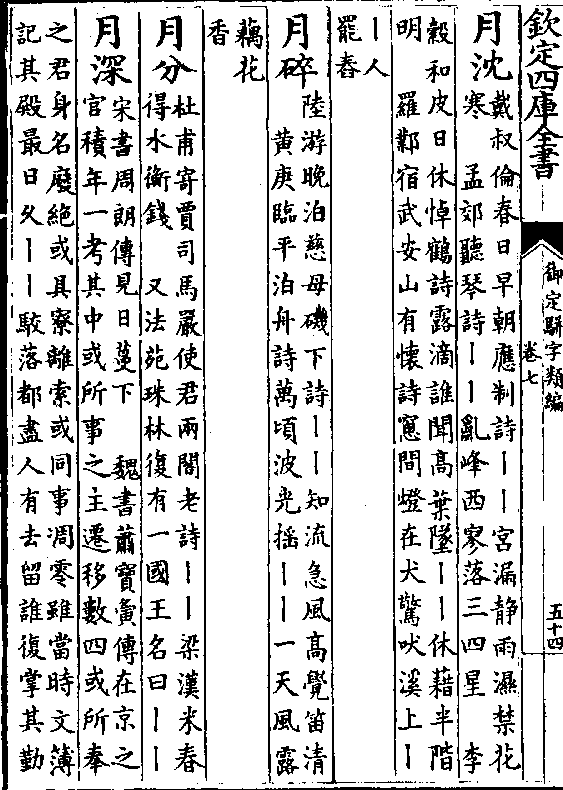 欽定四庫全書
御定駢字類編
卷七
五十四
月沈
戴叔倫春日早朝應制詩丨丨宮漏静雨濕禁花
寒　孟郊聽琴詩丨丨亂峰西寥落三四星　李
縠和皮日休悼鶴詩露滴誰聞高葉墜丨丨休藉半階
明　羅鄴宿武安山有懷詩窻間燈在犬驚吠溪上丨
丨人
罷舂
月碎
陸游晚泊慈母磯下詩丨丨知流急風高覺笛清
黃庚臨平泊舟詩萬頃波光揺丨丨一天風露
藕花
香
月分
杜甫寄賈司馬嚴使君兩閣老詩丨丨梁漢米春
得水衡錢　又法苑珠林復有一國王名曰丨丨
月深
宋書周朗傳見日蔓下　魏書蕭寶夤傳在京之
官積年一考其中或所事之主遷移數四或所奉
之君身名廢絶或具寮離索或同事凋零雖當時文簿
記其殿最日久丨丨駮落都盡人有去留誰復掌其勤